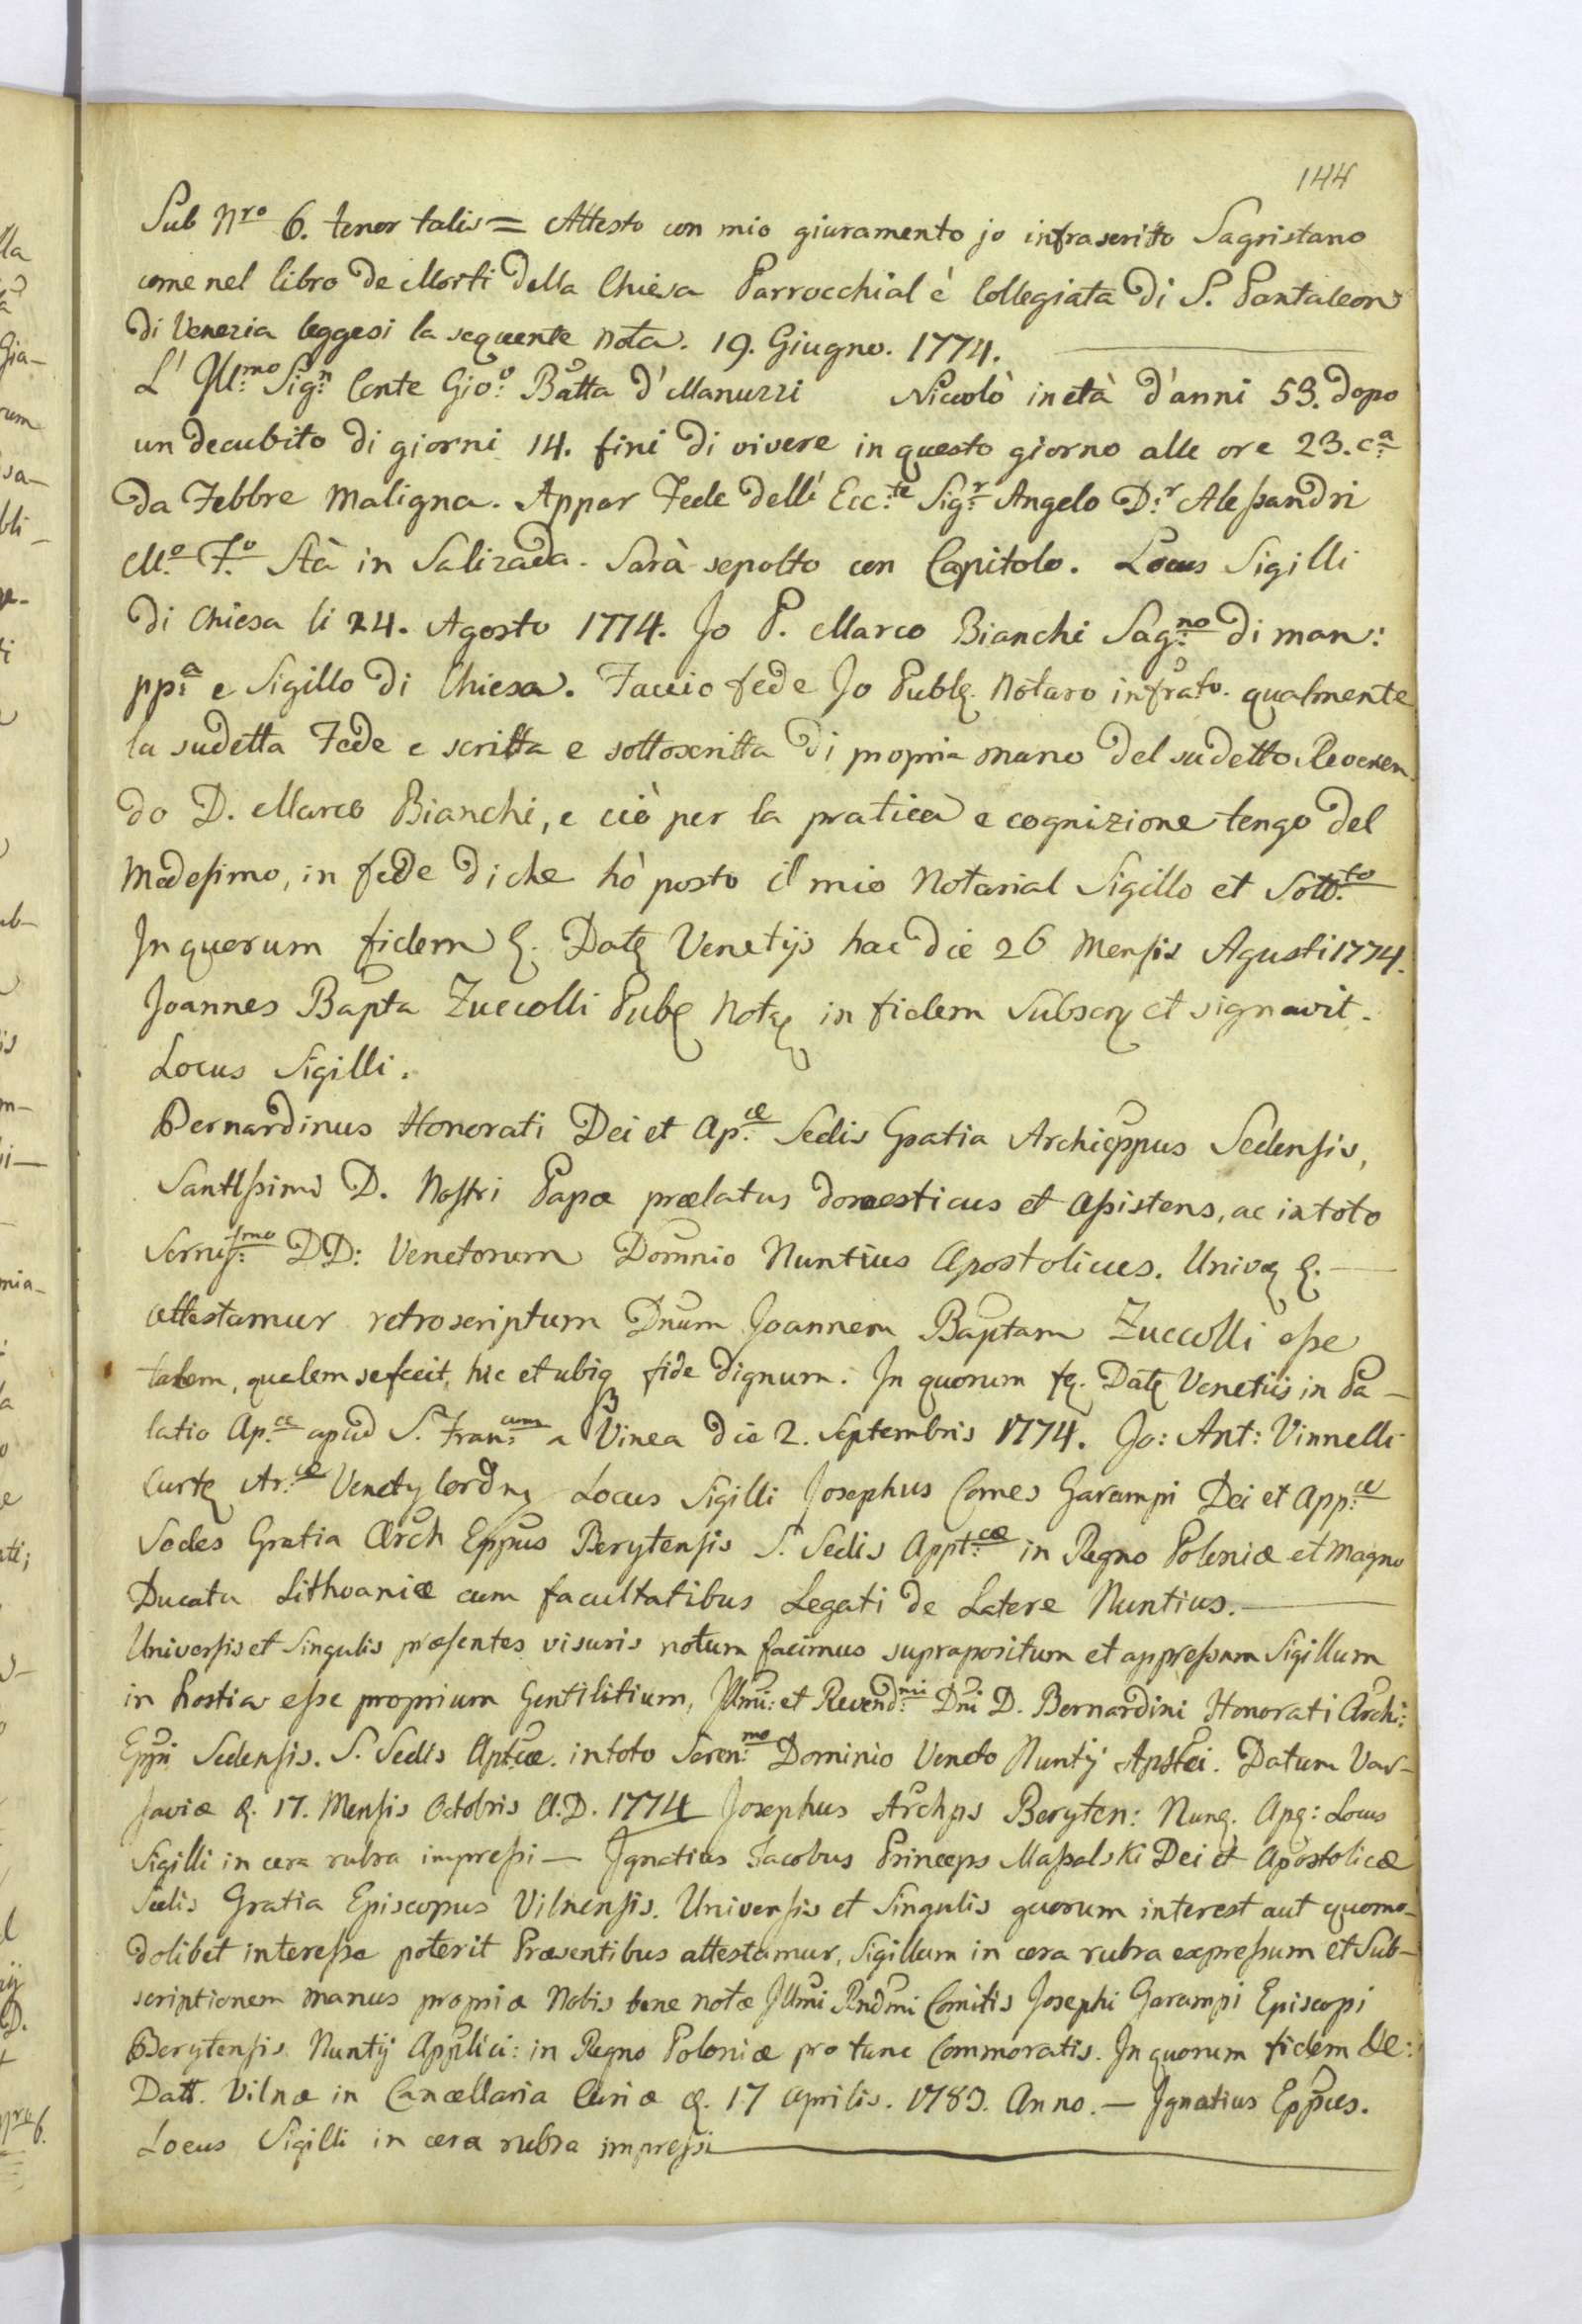 144
Sub Nro 6. tenor talis = Attesto con mio giuramento jo infrascritto Sagristano
come nel libro de Morti della Chiesa Parrocchial è Collegiata di S. Pantaleon
di Venezia leggesi la sequente nota. 19. Giugno. 1774.
L' Ill:mo Sig:n Conte Gio:o Batta d'Manuzzi Niccolò in età d'anni 53. dopo
un decubito di giorni 14. fini di vivere in questo giorno alle ore 23. c:a
da Febbre maligna. Appar Fede dell' Ecc:te Sig:r Angelo D:r Aleßandri
M:o F:o Stà in Salizada. Sarà sepolto con Capitolo. Locus Sigilli
di Chiesa li 24. Agosto 1774. Jo P. Marco Bianchi Sag:no di man:
pp:a e Sigillo di Chiesa. Faccio fede Jo Publ. Notaro infrato. qualmente
la sudetta Fede e scritta e sottoscritta di propria mano del sudetto Reveren
do D. Marco Bianchi, e ciò per la pratica e cognizione tengo del
Medesimo, in fede di che hò posto il mio Notarial Sigillo et Sott:to
In quorum fidem &. Dat Venetijs hac die 26 Mensis Agusti 1774.
Joannes Bapta Zuccolli Pub Not in fidem Subscr et signavit.
Locus Sigilli.
Bernardinus Honorati Dei et Ap:æ Sedis Gratia Archieppus Sedensis,
Santißimi D. Nostri Papæ prælatus domesticus et Aßistens, ac in toto
Sernis:smo DD: Venetorum Domnio Nuntius Apostolicus. Univ &.
attestamur retroscriptum Dnum Joannem Baptam Zuccolli eße
talem, qualem se fecit, hic et ubiq fide dignum. In quorum f. Dat Venetiis in Pa-
latio Ap:æ apud S. Fran:cum a Vinea die 2. Septembris 1774. Jo: Ant: Vinnelli
Locus Sigilli Josephus Comes Garampi Dei et App:æ
Sedes Gratia Arch Eppus Berytensis S. Sedis Appt:cæ in Regno Poloniæ et Magno
Ducatu Lithvaniæ cum facultatibus Legati de Latere Nuntius.
Universis et Singulis præsentes visuris notum facimus suprapositum et appreßum Sigillum
in hostia eße proprium Gentilitium, Illmi: et Revend:mi Dni D. Bernardini Honorati Archi:
Eppi Sedensis. S. Sedis Aptcæ. in toto Seren:mo Dominio Veneto Nuntij Apstci. Datum Var-
saviæ &. 17. Mensis Octobris A.D. 1774 Josephus Archps Beryten: Nun. Ap: Locus
Sigilli in cera rubra impreßi — Ignatius Jacobus Princeps Maßalski Dei et Apostolicæ
Sedis Gratia Episcopus Vilnensis. Universis et Singulis quorum interest aut quomo-
dolibet intereße poterit Præsentibus attestamur, Sigillum in cera rubra expreßum et Sub-
scriptionem manus propriæ Nobis bene notæ Illmi Rndmi Comitis Josephi Garampi Episcopi
Berytensis Nuntij Applici: in Regno Poloniæ pro tunc Commoratis. In quorum fidem &c:
Datt. Vilnæ in Cancellaria Curiæ &. 17 Aprilis. 1783. Anno. — Ignatius Eppus.
Locus Sigilli in cera rubra impreßi